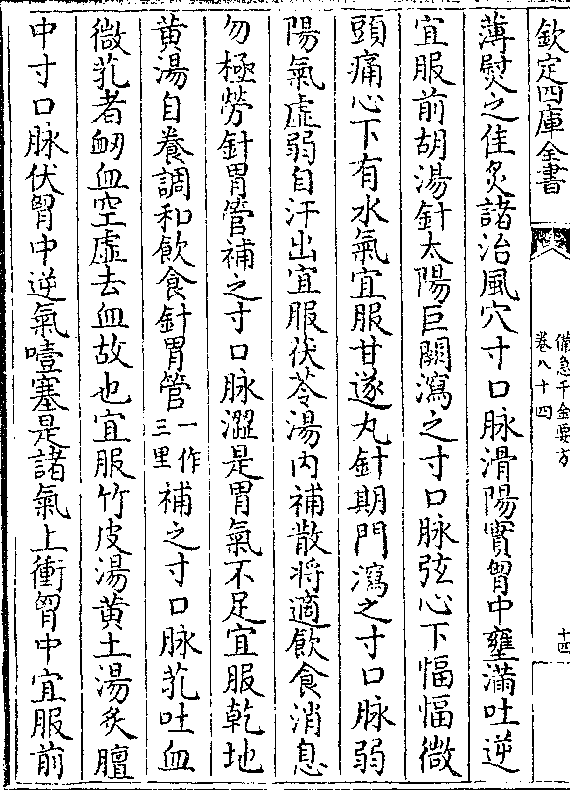 欽定四庫全書
備急千金要方
卷八十四
十四
薄熨之佳炙諸治風穴寸口脉滑陽實胷中壅滿吐逆
宜服前胡湯針太陽巨闕瀉之寸口脉弦心下愊愊微
頭痛心下有水氣宜服甘遂丸針期門瀉之寸口脉弱
陽氣虛弱自汗出宜服茯苓湯内補散將適飲食消息
勿極勞針胃管補之寸口脉澀是胃氣不足宜服乾地
黄湯自養調和飲食針胃管一作三里補之寸口脉芤吐血
微芤者衂血空虛去血故也宜服竹皮湯黄土湯炙膻
中寸口脉伏胷中逆氣噎塞是諸氣上衝胷中宜服前